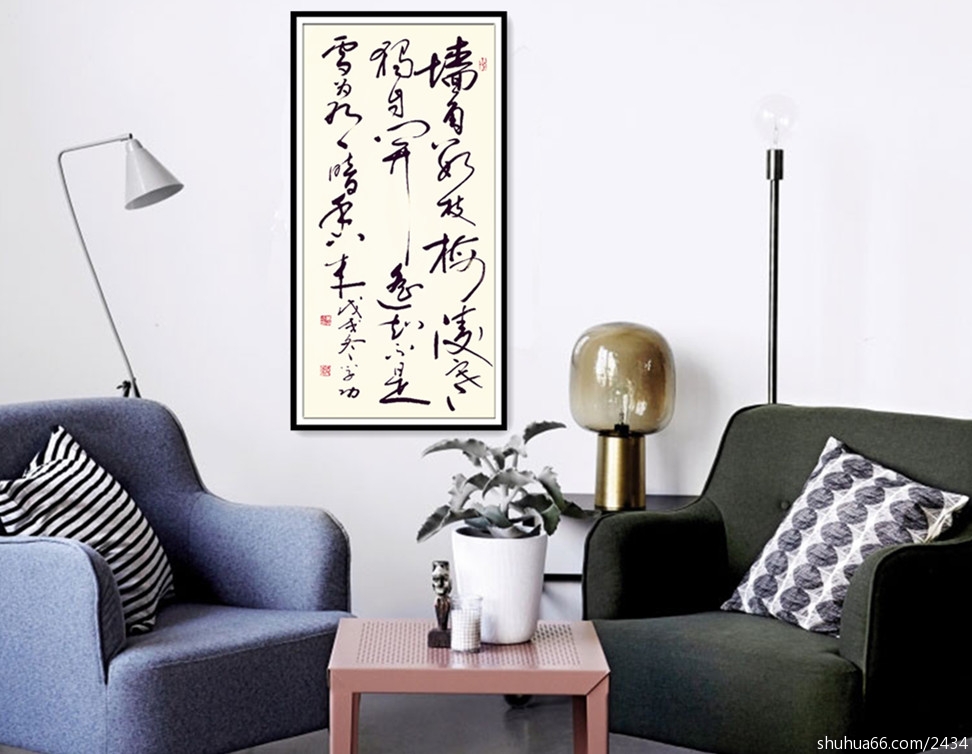 墙角数枝梅凌寒
獨自開遥知不是
雪为有暗香来
戊戌冬学功
shuhua66.com/2434